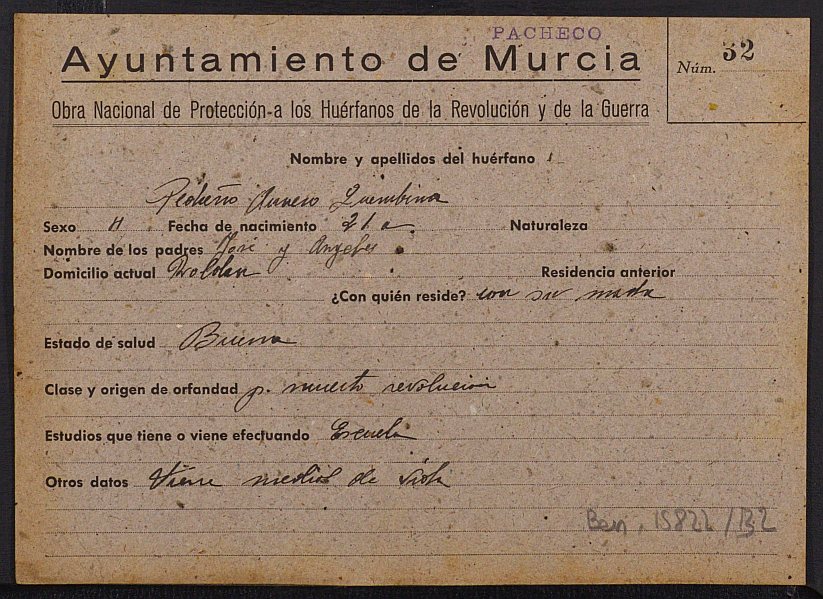 PACHECO
Ayuntamiento de Murcia
Núm. 32
Obra Nacional de Protección a los Huérfanos de la Revolución y de la Guerra
Nombre y apellidos del huérfano
Pedreño
Sexo H Fecha de nacimiento 21 a. Naturaleza
Nombre de los padres José y Angeles
Domicilio actual Roldan Residencia anterior
¿Con quién reside? con su madre
Estado de salud Buena
Clase y origen de orfandad p. muerto revolución
Estudios que tiene o viene efectuando Escuela
Otros datos Tiene medios de vida
Ben. 15822/132